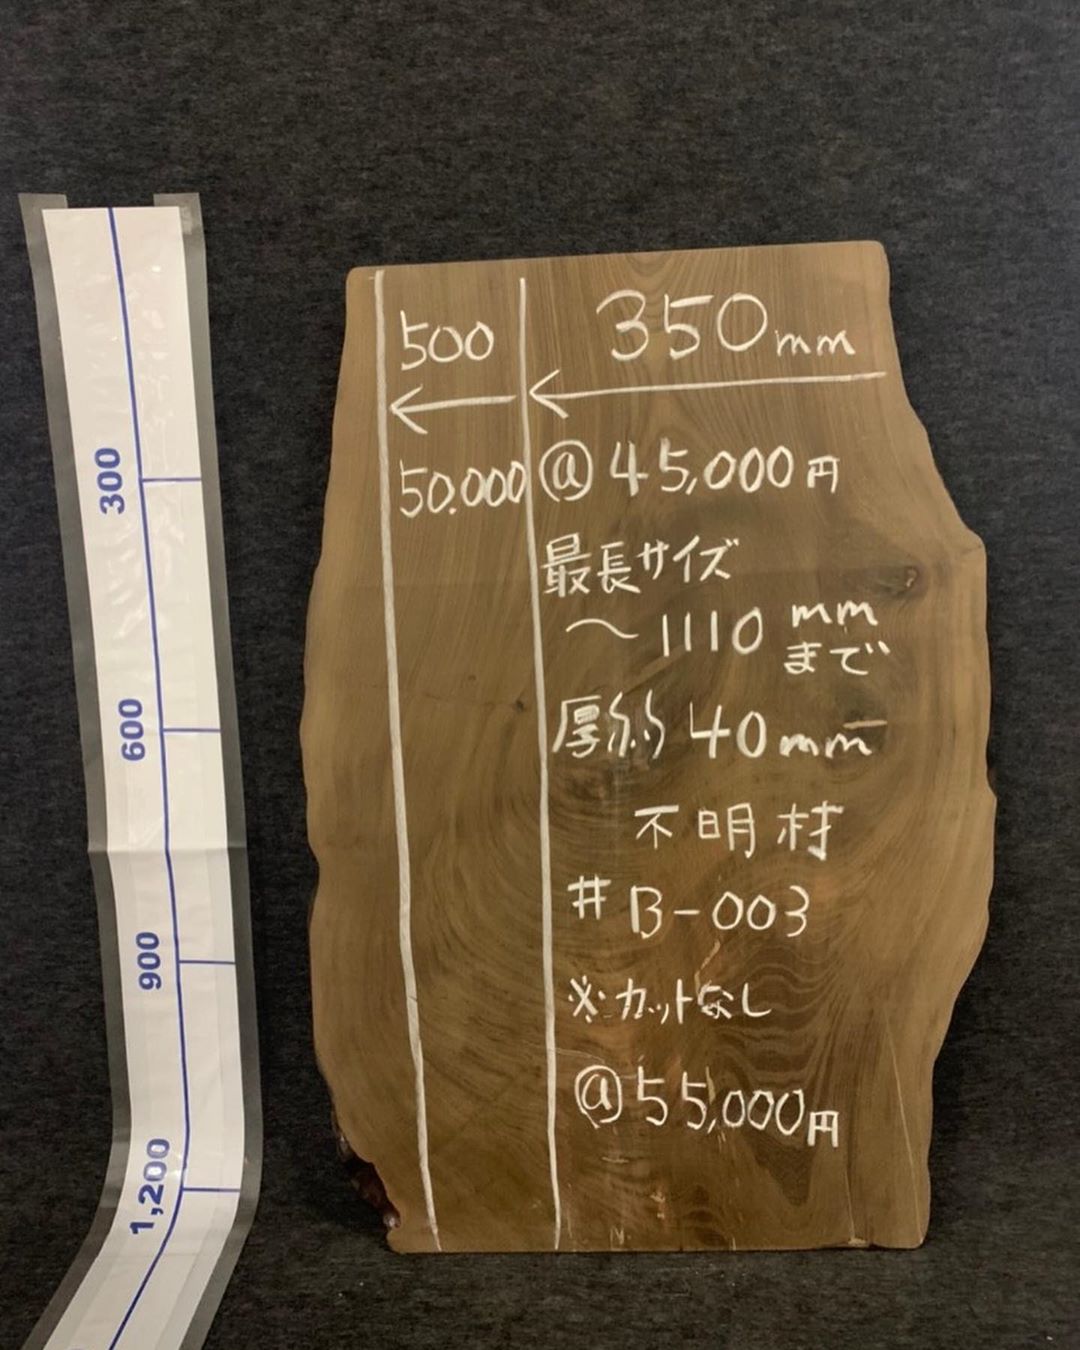 500
50.000
350mm
@45,000円
最長サイズ
〜1110mm
まで
厚約40mm
不明材
#B-003
※カットなし
@55,000円
300
600
900
1,200